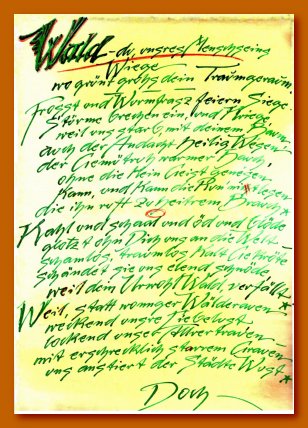 Wald – du, unsres Menschseins
Wiege
wo grünt dein Traumgeraun,
Frosst und Wurmfrasz feiern Siege
Stürme brechen ein, und Kriege
weil uns starb, mit deinem Baum
auch der Andacht heilig Wesen
der Gemütruh warmer Hauch,
ohne die kein Geist genesen
kann, und kann die
die ihn ruft zu heitrem Brauch
Kahl und schaal und öd und blöde
glotzt ohn Dich uns an die Welt
schamlos, traumlos kalt
schändet sie uns elend schnöde
weil dein Urwohl Wald, verfällt
Weil, statt wonniger Wälder
weckend unsre
lockend unser Allvertrauen
mit erschrecklich starrem Grauen
uns anstiert der Städte Wust
Doch –